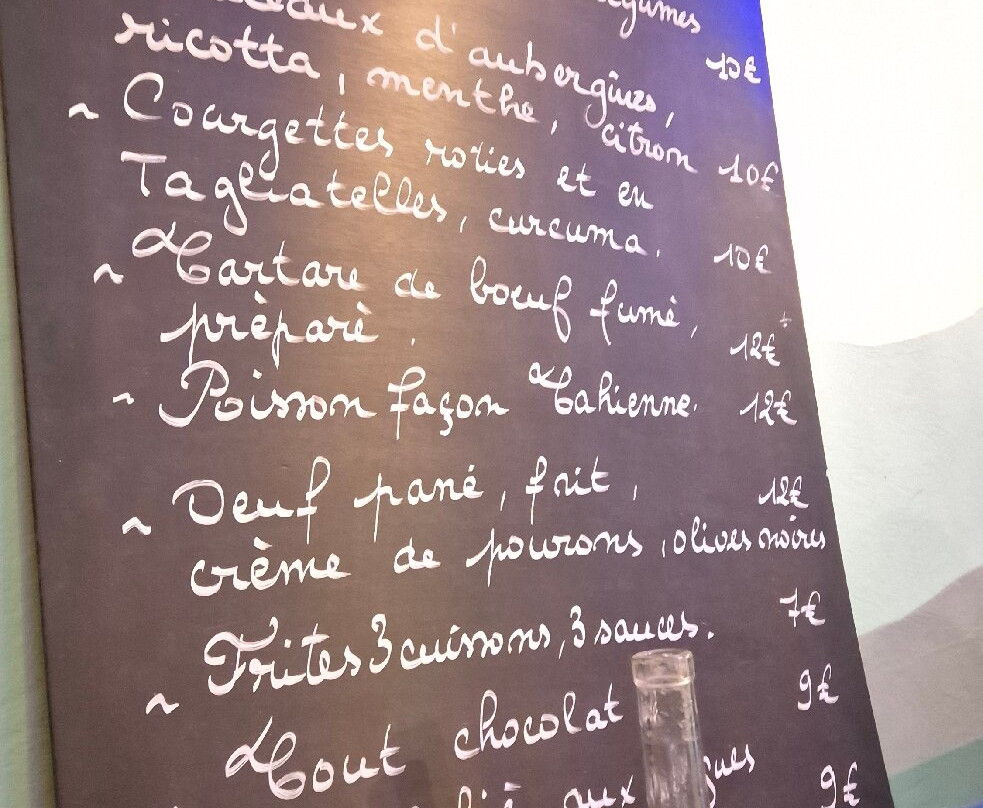 d'aubergines, 10€
ricotta, menthe, citron 10€
~ Courgettes roties et en
Tagliatelles, curcuma. 10€
~ Tartare de boeuf fumé,
préparé. 12€+
~ Poisson façon Tahienne. 12€
~ Oeuf pané, frit, 12€
crème de poivrons, olives noires
~ Frites 3 cuissons, 3 sauces. 7€
Tout chocolat 9€
aux 9€